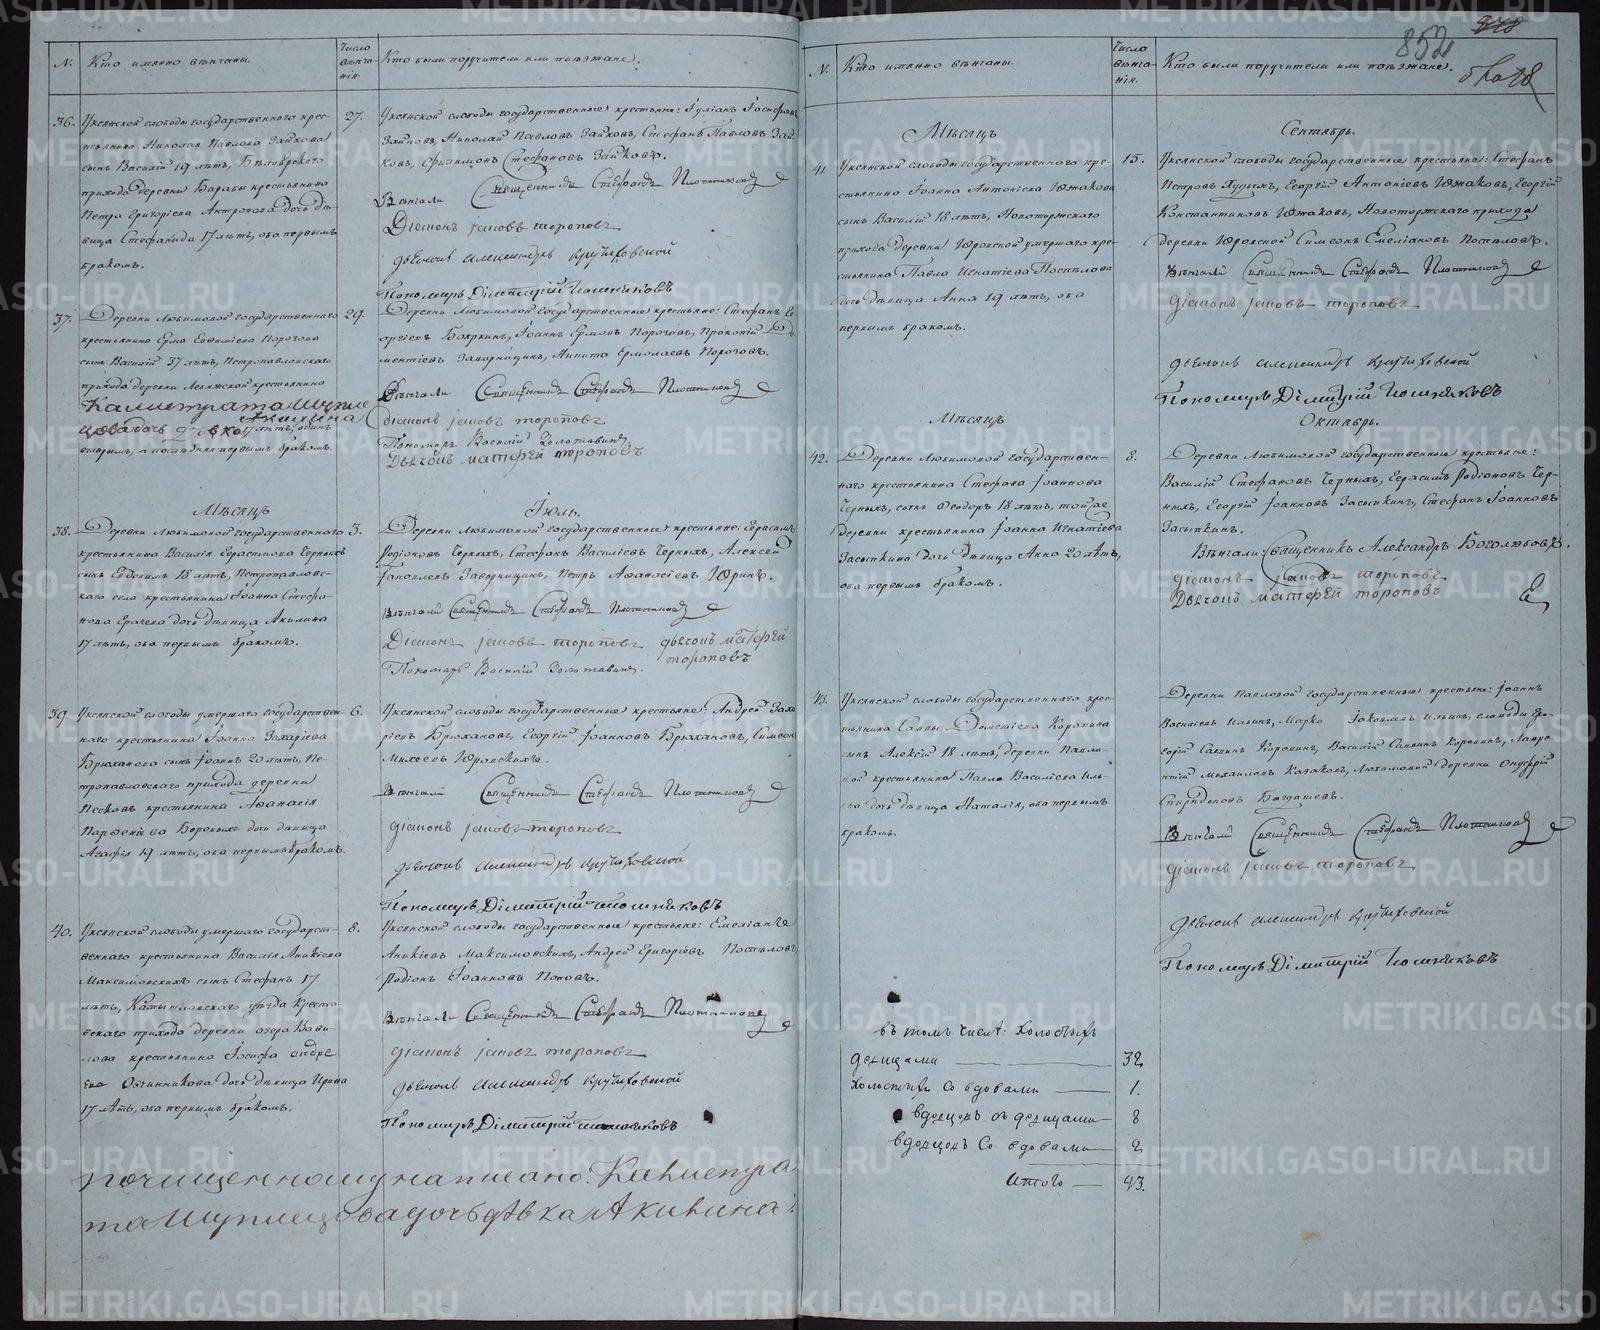 №
Кто именно вѣнчаны.
Число вѣнча-
нія.
Кто были поручители или поѣзжане.
36.
Уксянской слободы государственнаго крес-
тьянина Николая Павлова Зайкова
сынъ Василій 19 лѣтъ, Бѣлоярскаго
прихода деревни Барабы крестьянина
Петра Григоріева Антропова дочь дѣ-
вица Стефанида 17 лѣтъ, оба первымъ
бракомъ.
27.
Уксянской слободы государственные крестьяне: Іуліанъ Іосифовъ
Зайковъ, Николай Павловъ Зайковъ, Стефанъ Павловъ Зай-
ковъ, Филимонъ Стефановъ Зайковъ.
Вѣнчали Священникъ Стефанъ Плотниковъ
Діяконъ Іаковъ Тороповъ
Дьячокъ Александръ Кручиховской
Пономарь Димитрій Тюшняковъ
37.
Деревни Любимовой государственнаго
крестьянина Ерма Евфиміева Порозова
сынъ Василій 37 лѣтъ, Петропавловскаго
прихода деревни Левяжской крестьянина
Калистрата Шупле
цова дочь дѣвка Акилина 17 лѣтъ, одинъ
вторымъ, а послѣдняя первымъ бракомъ.
29.
Деревни Любимовой государственные крестьяне: Стефанъ Ге-
оргіевъ Бояркинъ, Іоаннъ Ермовъ Порозовъ, Прокопій Де-
ментіевъ Заворницинъ, Никита Ермолаевъ Порозовъ.
Вѣнчали Священникъ Стефанъ Плотниковъ
Діяконъ Іаковъ Тороповъ
Пономарь Василій Золотавинъ
Дьячокъ Матфей Тороповъ
Мѣсяцъ
Іюль.
38.
Деревни Любимовой государственнаго
крестьянина Василія Герасимова Черныхъ
сынъ Евдокимъ 18 лѣтъ, Петропавловс-
каго села крестьянина Іоанна Стефа-
нова Грачева дочь дѣвица Акилина
17 лѣтъ, оба первымъ бракомъ.
3.
Деревни Любимовой государственные крестьяне: Герасимъ
Родіоновъ Черныхъ, Стефанъ Василіевъ Черныхъ, Алексей
Заворницинъ, Петръ Афанасіевъ Юринъ.
Вѣнчали Священникъ Стефанъ Плотниковъ
Діяконъ Іаковъ Тороповъ Дьячокъ Матфей
Тороповъ
Пономарь Василій Золотавинъ.
39.
Уксянской слободы умершаго государствен-
наго крестьянина Іоанна Захаріева
Брюханова сынъ Іоаннъ 20 лѣтъ, Пе-
тропавловскаго прихода деревни
Песковъ крестьянина Афанасія
Парфеніева Боровыхъ дочь дѣвица
Агафія 19 лѣтъ, оба первымъ бракомъ.
6.
Уксянской слободы государственные крестьяне: Андрей Заха-
ріевъ Брюхановъ, Георгій Іоанновъ Брюхановъ, Симеонъ
Михеевъ Юровскихъ.
Вѣнчали Священникъ Стефанъ Плотниковъ
Діяконъ Іаковъ Тороповъ
Дьячокъ Александръ Кручиховской
Пономарь Димитрій Тюшняковъ
40.
Уксянской слободы умершаго государст-
веннаго крестьянина Василія Аникіева
Максимовскихъ сынъ Стефанъ 17
лѣтъ, Камышловскаго уѣзда Кресто-
вскаго прихода деревни озера Вави-
лова крестьянина Іосифа Андре
ева Овчинникова дочь дѣвица Ирина
17 лѣтъ, оба первымъ бракомъ.
8.
Уксянской слободы государственные крестьяне: Емеліанъ
Аникіевъ Максимовскихъ, Андрей Григоріевъ Поспѣловъ,
Родіонъ Іоанновъ Поповъ.
Вѣнчали Священникъ Стефанъ Плотниковъ
Діяконъ Іаковъ Тороповъ
Дьячокъ Александръ Кручиховской
Пономарь Димитрій Тюшняковъ
почищенному написано: Калистра
та Шуплецова дочь дѣвка Акилина.
378
852
№
Кто именно вѣнчаны.
Число вѣнча-
нія.
Кто были поручители или поѣзжане.
Мѣсяцъ
Сентябрь.
41.
Уксянской слободы государственнаго кре-
стьянина Іоанна Антоніева Южакова
сынъ Василій 18 лѣтъ, Новоторжскаго
прихода деревни Юровской умершаго кре-
стьянина Павла Игнатіева Поспѣлова
дочь дѣвица Анна 19 лѣтъ, оба
первымъ бракомъ.
15.
Уксянской слободы государственные крестьяне: Стефанъ
Петровъ Худыхъ, Георгій Антоніевъ Южаковъ, Георгій
Константиновъ Южаковъ, Новоторжскаго прихода
деревни Юровской Симеонъ Емеліановъ Поспѣловъ.
Вѣнчали Священникъ Стефанъ Плотниковъ
Діяконъ Іаковъ Тороповъ
Дьячокъ Александръ Кручиховской
Пономарь Димитрій Тюшняковъ
Мѣсяцъ
Октябрь.
42.
Деревни Любимовой государствен-
наго крестьянина Стефана Іоаннова
Черныхъ, сынъ Феодоръ 18 лѣтъ, той же
деревни крестьянина Іоанна Игнатіева
Засыпкина дочь дѣвица Анна 20 лѣтъ,
оба первымъ бракомъ.
8.
Деревни Любимовой государственные крестьяне:
Василій Стефановъ Черныхъ, Герасимъ Родіоновъ Чер-
ныхъ, Георгій Іоанновъ Засыпкинъ, Стефанъ Іоанновъ
Засыпкинъ.
Вѣнчали: Священникъ Александръ Боголюбовъ.
Діяконъ Іаковъ Тороповъ
Дьячокъ Матфей Тороповъ
43.
Уксянской слободы государственнаго крес-
тьянина Саввы Дометіева Коровина
сынъ Алексій 18 лѣтъ, деревни Павло-
вой крестьянина Павла Василіева Иль-
ина дочь дѣвица Наталія, оба первымъ
бракомъ.
Деревни Павловой государственные крестьяне: Іоаннъ
Василіевъ Ильинъ, Марко Іаковлевъ Ильинъ, слободы Гри-
горій Саввинъ Коровинъ, Василій Саввинъ Коровинъ, Лавре-
нтій Михаиловъ Казаковъ, Любимовой деревни Онуфрій
Спиридоновъ Богдашевъ.
Вѣнчали Священникъ Стефанъ Плотниковъ
Діяконъ Іаковъ Тороповъ
Дьячокъ Александръ Кручиховской
Пономарь Димитрій Тюшняковъ
въ томъ числѣ: холостыхъ
девицами — 32
Холостыхъ со вдовами — 1.
вдовцовъ съ девицами — 8
вдовцовъ со вдовами — 2
Итого — 43.
METRIKI.GASO-URAL.RU